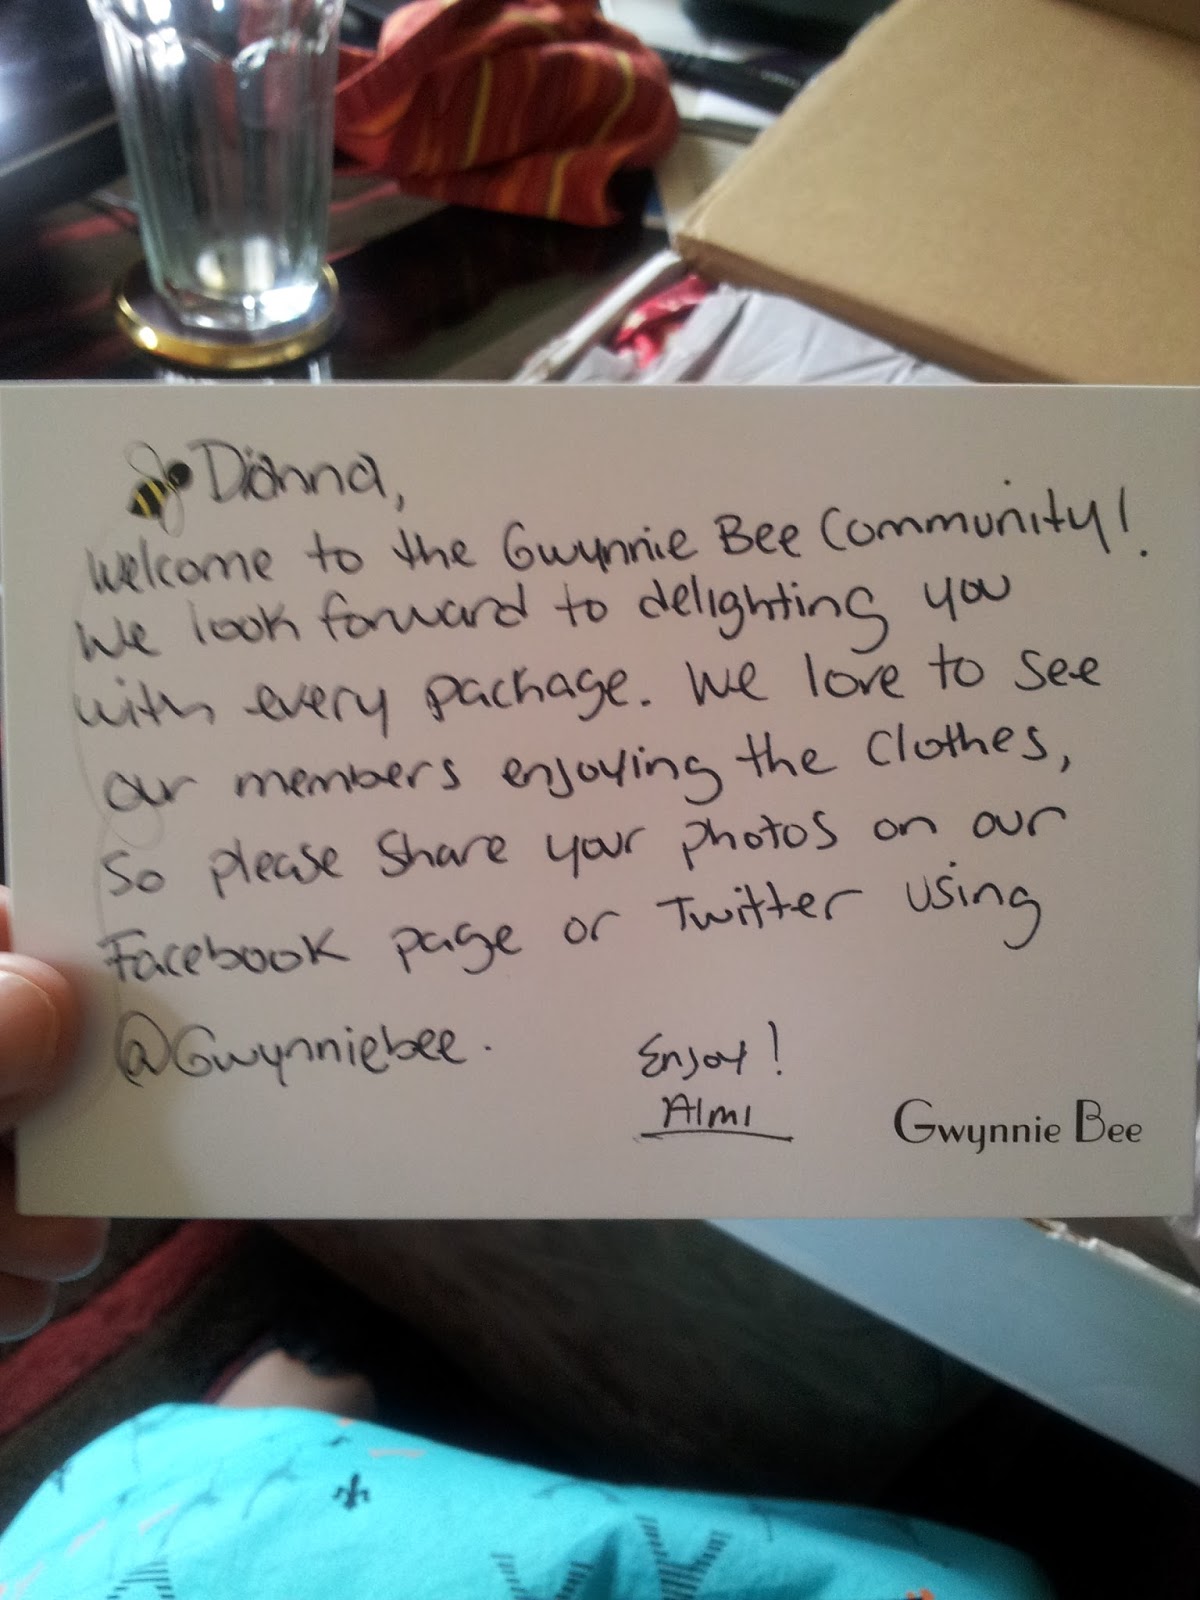 Dianna,
Welcome to the Gwynnie Bee Community!
We look forward to delighting you
with every package. We love to see
our members enjoying the clothes,
So please share your photos on our
Facebook page or Twitter using
@Gwynniebee.
Enjoy!
Almi
Gwynnie Bee